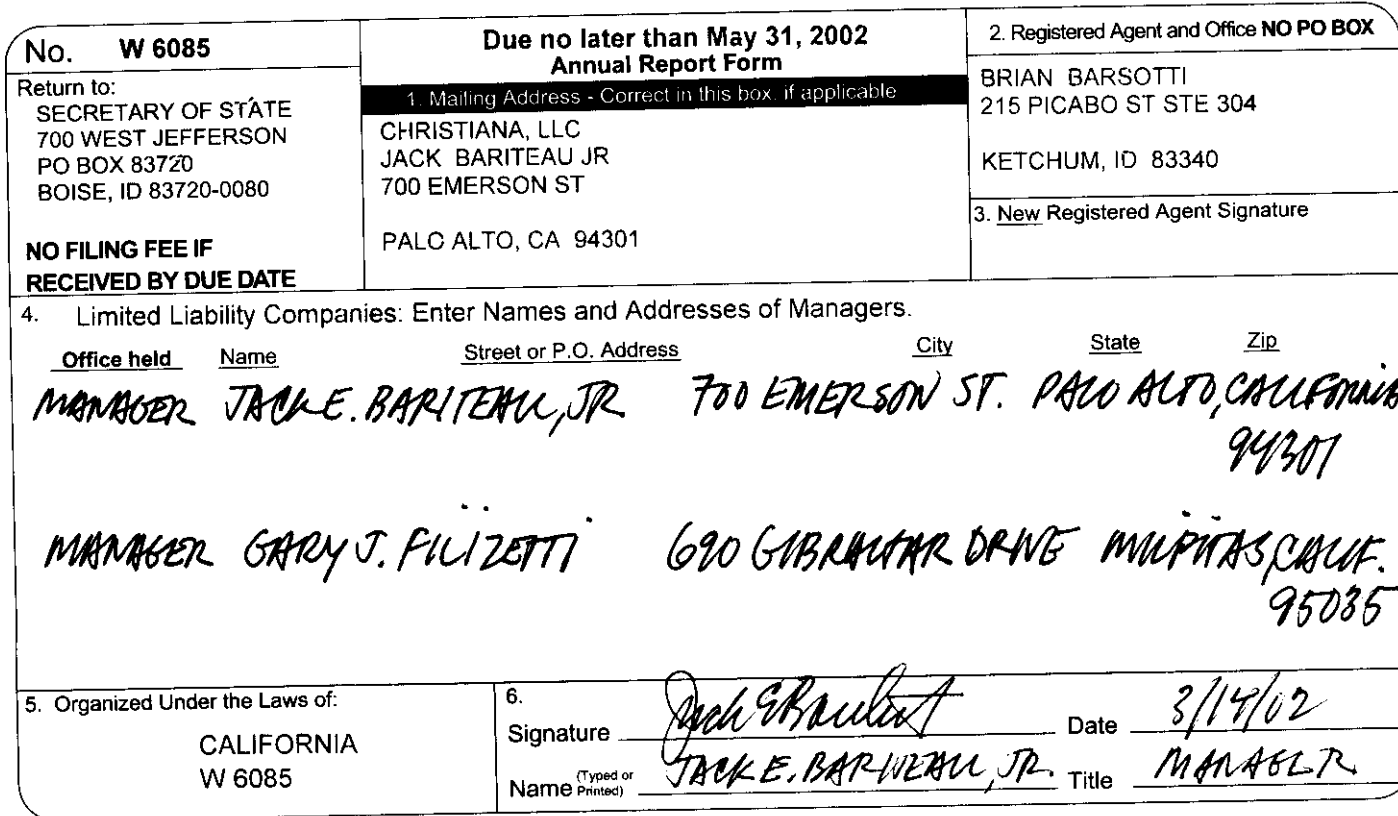 No. W 6085
Return to:
SECRETARY OF STATE
700 WEST JEFFERSON
PO BOX 83720
BOISE, ID 83720-0080
NO FILING FEE IF
RECEIVED BY DUE DATE
Due no later than May 31, 2002
Annual Report Form
1. Mailing Address - Correct in this box, if applicable
CHRISTIANA, LLC
JACK BARITEAU JR
700 EMERSON ST
PALO ALTO, CA 94301
2. Registered Agent and Office NO PO BOX
BRIAN BARSOTTI
215 PICABO ST STE 304
KETCHUM, ID 83340
3. New Registered Agent Signature
4. Limited Liability Companies: Enter Names and Addresses of Managers.
Office held Name Street or P.O. Address City State Zip
MANAGER JACK E. BARITEAU, JR 700 EMERSON ST. PALO ALTO, CALIFORNIA
94301
MANAGER GARY J. FILIZETTI 690 GIBRALTAR DRIVE MILPITAS, CALIF.
95035
5. Organized Under the Laws of:
CALIFORNIA
W 6085
6.
Signature Jack E Bariteau Date 3/14/02
Name (Typed or Printed) JACK E. BARITEAU, JR. Title MANAGER